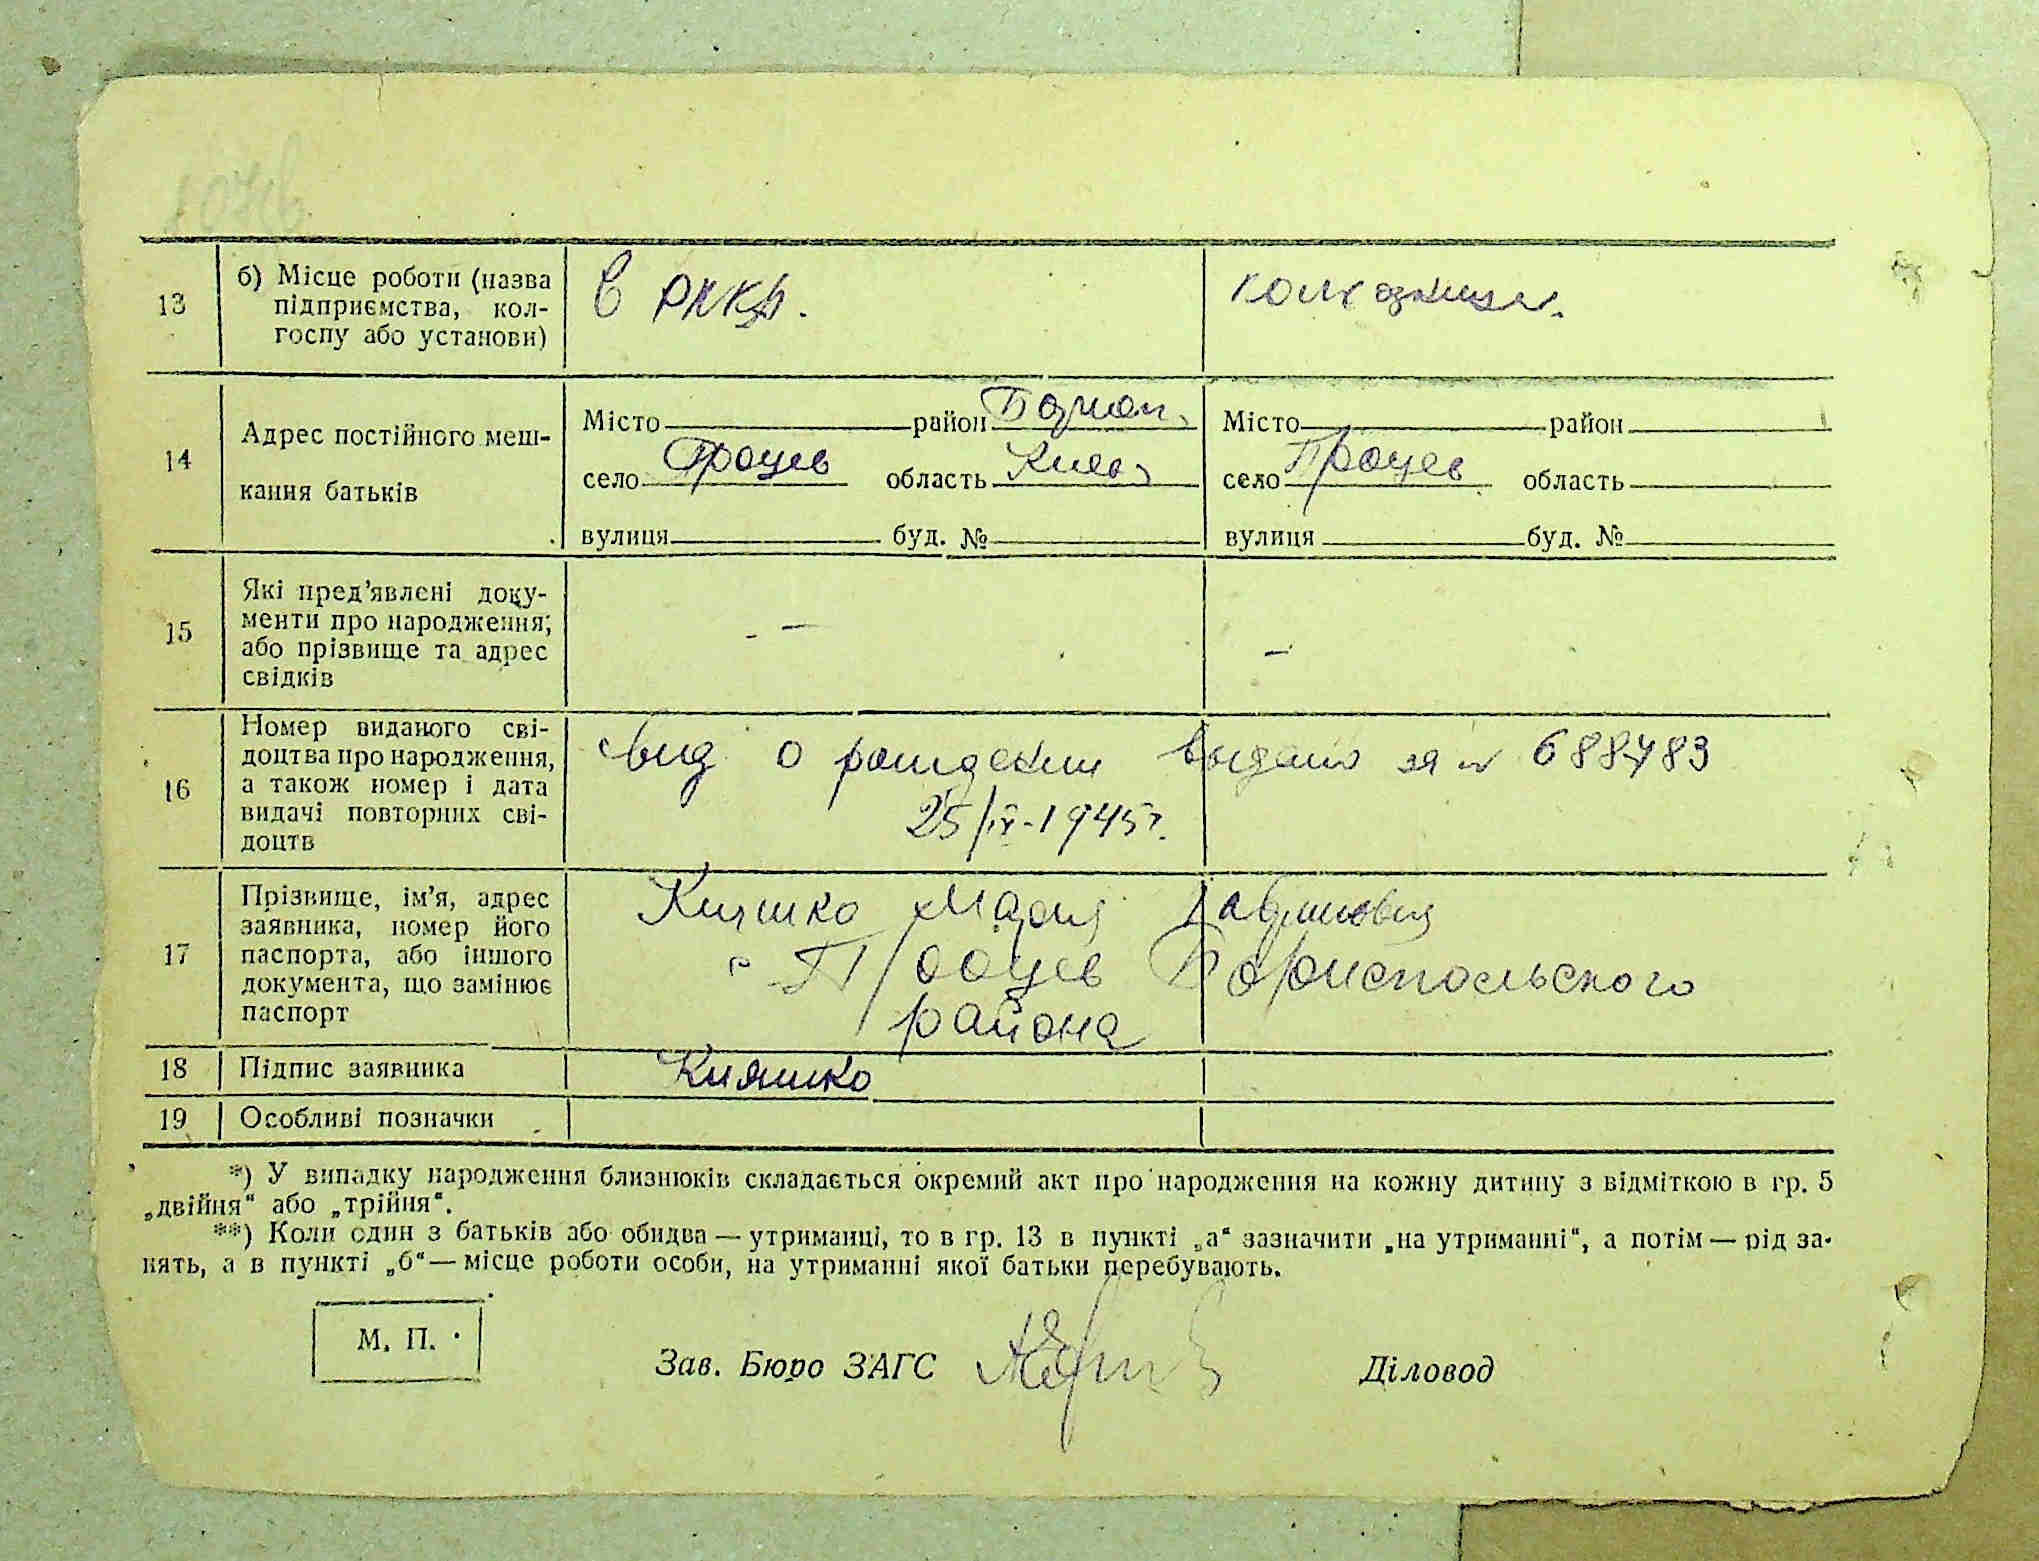 13
б) Місце роботи (назва
підприємства, кол-
госпу або установи)
в РККА.
колхозница.
14
Адрес постійного меш-
кання батьків
Місто район
село Процев область Киев
вулиця буд. №
Місто район
село Процев область
вулиця буд. №
15
Які пред’явлені доку-
менти про народження;
або прізвище та адрес
свідків
- –
–
16
Номер виданого сві-
доцтва про народження,
а також номер і дата
видачі повторних сві-
доцтв
о рождении выдано за № 688483
25/IX-1945г.
17
Прізвище, ім’я, адрес
заявника, номер його
паспорта, або іншого
документа, що замінює
паспорт
Кияшко Мария
Процев Бориспольского
района
18
Підпис заявника
Кияшко
19
Особливі позначки
*) У випадку народження близнюків складається окремий акт про народження на кожну дитину з відміткою в гр. 5
„двійня“ або „трійня“.
**) Коли один з батьків або обидва — утриманці, то в гр. 13 в пункті „а“ зазначити „на утриманні“, а потім — рід за-
нять, а в пункті „б“ — місце роботи особи, на утриманні якої батьки перебувають.
М. П.
Зав. Бюро ЗАГС
Діловод